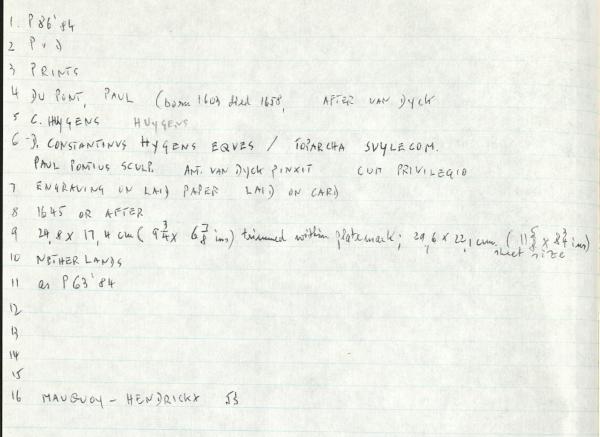 1. P86'84
2 P & D
3 PRINTS
4 DU PONT, PAUL (born 1603 died 1658, AFTER VAN DYCK
5 C. HUYGENS HUYGENS
6 D. CONSTANTINVS HYGENS EQVES / TOPARCHA SVYLECOM.
PAUL PONTIUS SCULP. ANT. VAN DYCK PINXIT CUM PRIVILEGIO
7 ENGRAVING ON LAID PAPER LAID ON CARD
8 1645 OR AFTER
9 24,8 x 17,4 cm ( 9 3/4 x 6 7/8 ins) trimmed within platemark; 29,6 x 22,1 cm. ( 11 5/8 x 8 3/4 ins)
sheet size
10 NETHERLANDS
11 as P63'84
12
13
14
15
16 MAUQUOY - HENDRICKX 53